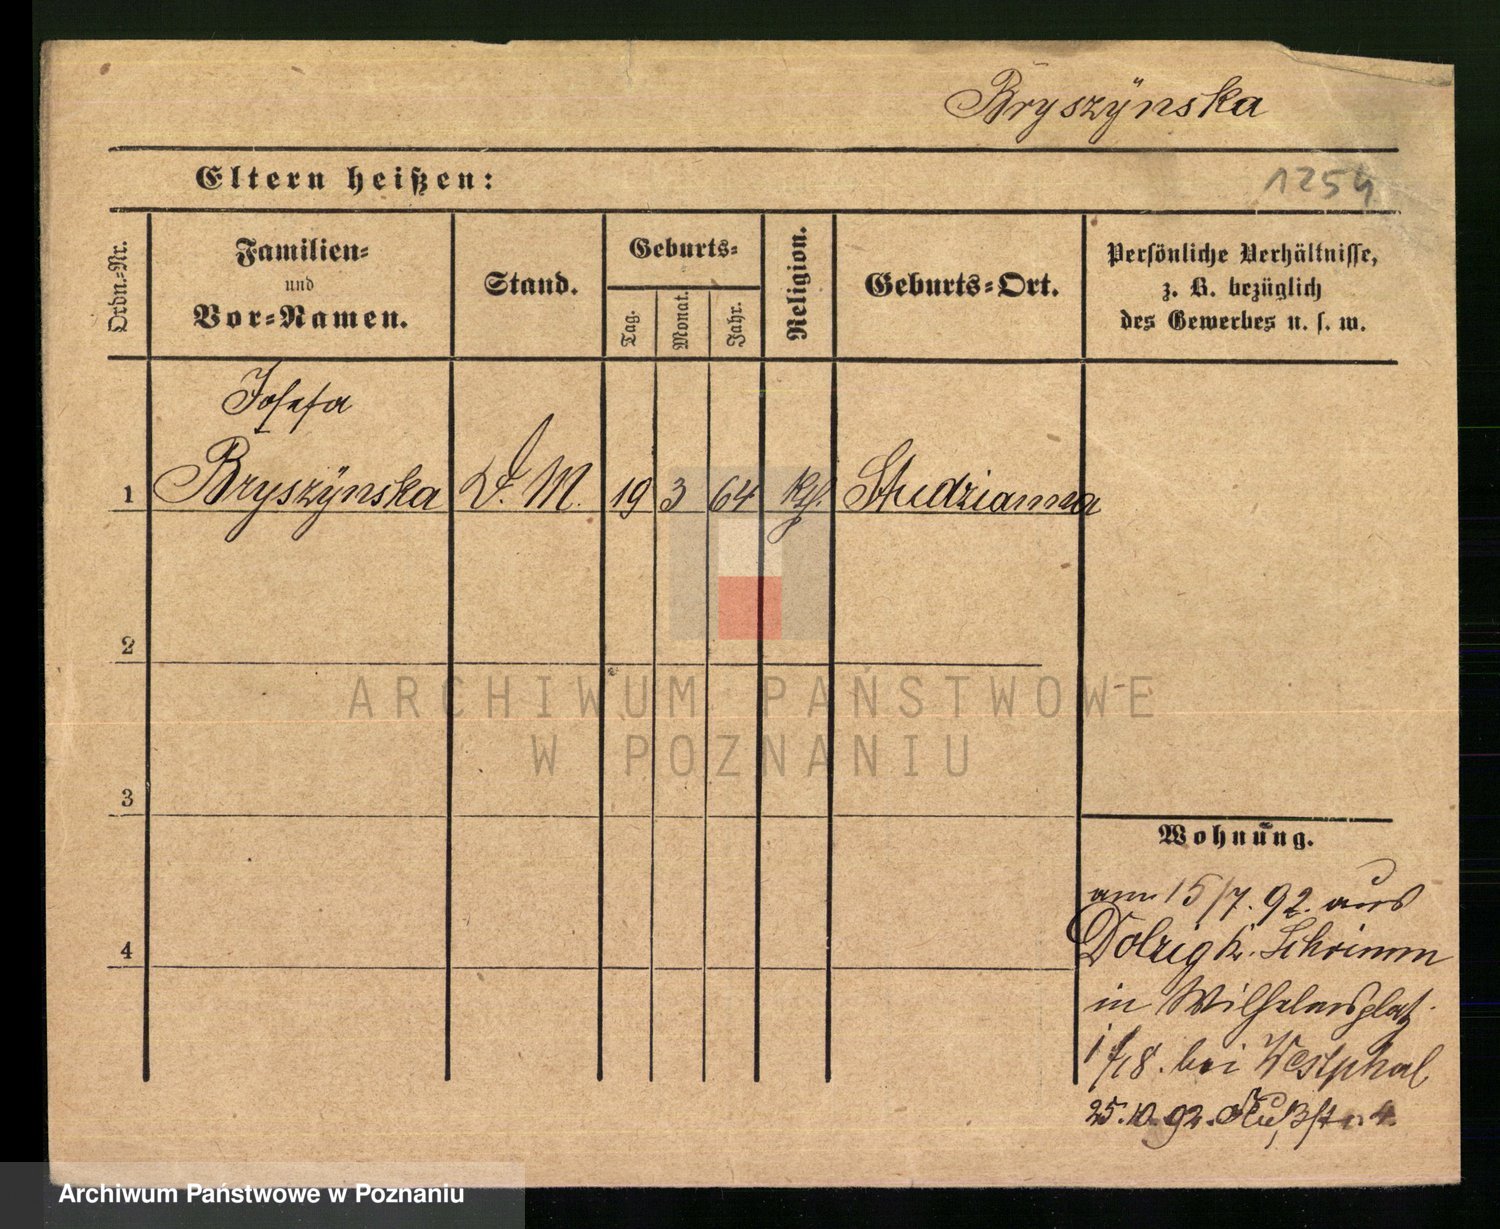 Bryszÿnska
Eltern heißen:
1254
Ordn.-Nr.
Familien-
und
Vor-Namen.
Stand.
Geburts-
Tag.
Monat.
Jahr.
Religion.
Geburts-Ort.
Persönliche Verhältnisse,
z. B. bezüglich
des Gewerbes u. s. w.
Josefa
1 Bryszÿnska D. M. 19 3 64 Studzianna
2
3
4
Wohnung.
am 15/7. 92. aus
Dolzig Kr. Schrimm
in Wilhelmsplatz
18. bei Westphal
25.10.92.
ARCHIWUM PAŃSTWOWE
W POZNANIU
Archiwum Państwowe w Poznaniu